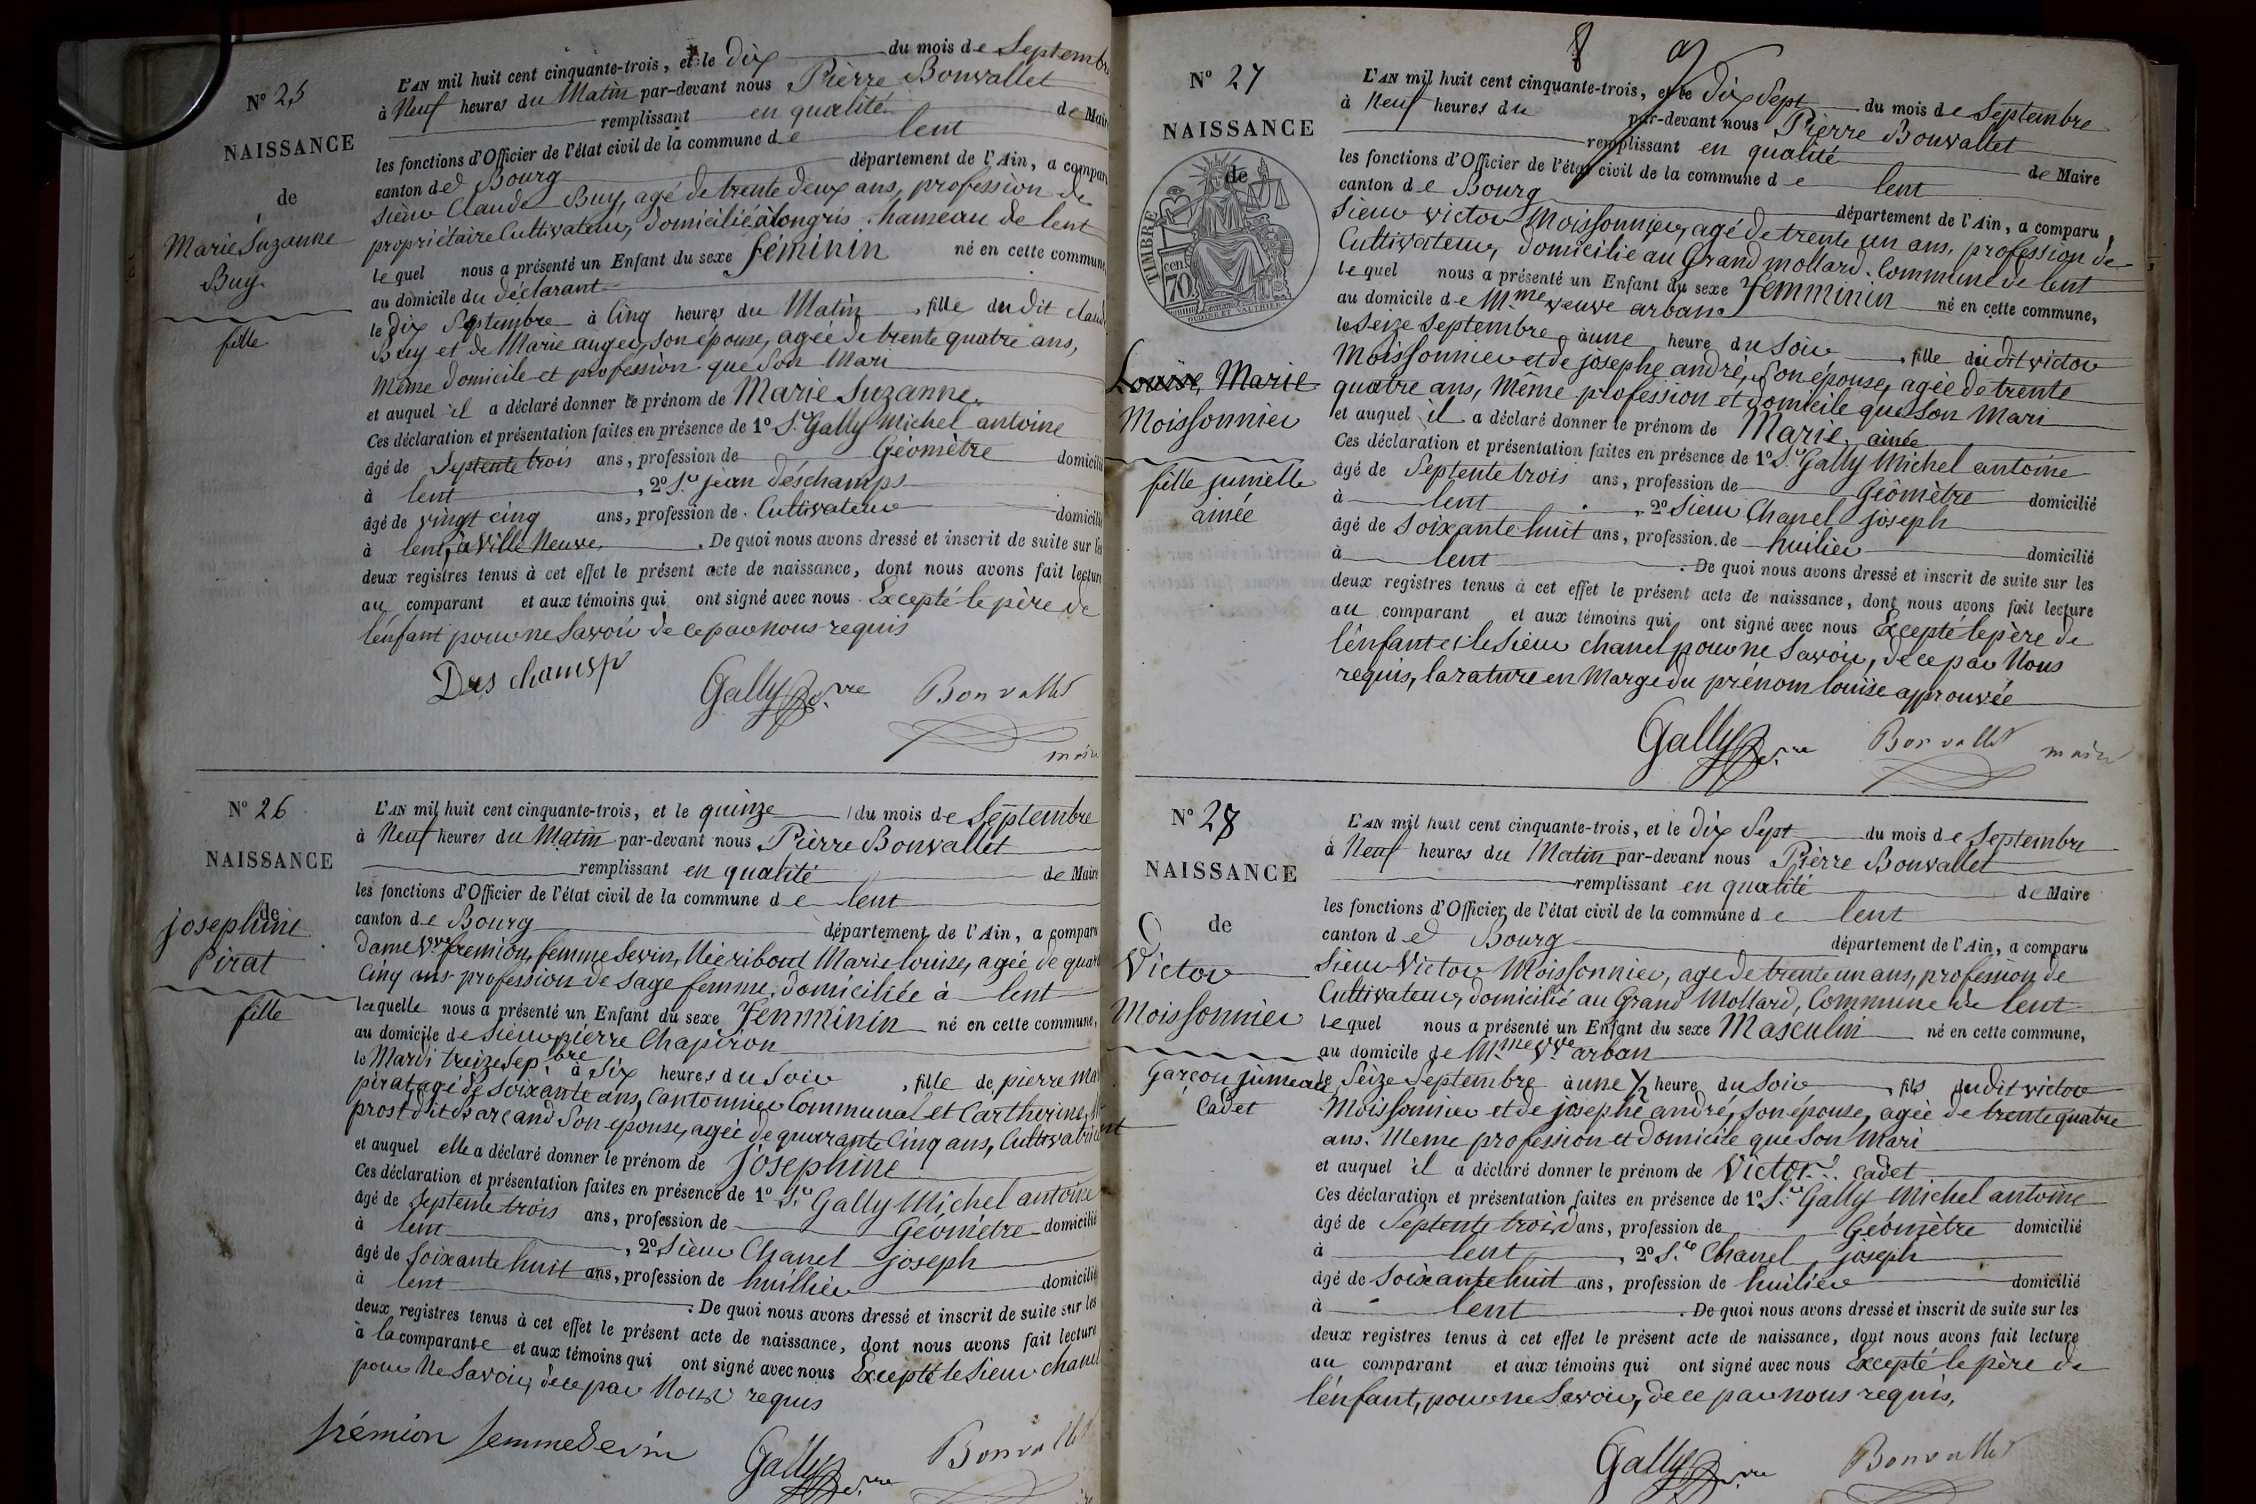 N° 25
NAISSANCE
de
Marie Suzanne
Buy
fille
L'AN mil huit cent cinquante-trois, et le dix du mois de Septembre
à Neuf heures du Matin par-devant nous Pierre Bonvallet
remplissant en qualité de Maire
les fonctions d'Officier de l'état civil de la commune de lent
canton de Bourg département de l'Ain, a comparu
Sieur Claude Buy, agé de trente deux ans, profession de
propriétaire Cultivateur, domicilié à longris hameau de lent
le quel nous a présenté un Enfant du sexe féminin né en cette commune,
au domicile du déclarant
le dix Septembre à Cinq heures du Matin, fille du dit claude
Buy et de Marie auger, son épouse, agée de trente quatre ans,
Même domicile et profession que Son Mari
et auquel il a déclaré donner le prénom de Marie Suzanne.
Ces déclaration et présentation faites en présence de 1° Sr Gally Michel antoine
âgé de Septente trois ans, profession de Géomètre domicilié
à lent, 2° Sr jean déschamps
âgé de vingt cinq ans, profession de Cultivateur domicilié
à lent, à Ville Neuve. De quoi nous avons dressé et inscrit de suite sur les
deux registres tenus à cet effet le présent acte de naissance, dont nous avons fait lecture
au comparant et aux témoins qui ont signé avec nous Excepté le père de
l'énfant pour ne Savoir de ce par nous requis
Des chamsp Gally Bonvallet
maire
N° 26
NAISSANCE
de
josephine
Pirat
fille
L'AN mil huit cent cinquante-trois, et le quinze du mois de Septembre
à Neuf heures du Matin par-devant nous Pierre Bonvallet
remplissant en qualité de Maire
les fonctions d'Officier de l'état civil de la commune de lent
canton de Bourg département de l'Ain, a comparu
dame Vve fremion, femme Sevin, Née ribout Marie louise, agée de quarante
Cinq ans profession de Sage femme, domiciliée à lent
laquelle nous a présenté un Enfant du sexe Femminin né en cette commune,
au domicile de Sieur pierre Chapiron
le Mardi treize Sepbre à Six heures du Soir, fille de pierre
pirat agé de Soixante ans, Cantonnier Communal et Cartherine
prost dit Son épouse, agée de quarante Cinq ans, Cultivatrice
et auquel elle a déclaré donner le prénom de josephine
Ces déclaration et présentation faites en présence de 1° Sr Gally Michel antoine
âgé de Septente trois ans, profession de Géomètre domicilié
à lent, 2° Sieur Chanel joseph
âgé de Soixante huit ans, profession de huillier domicilié
à lent. De quoi nous avons dressé et inscrit de suite sur les
deux registres tenus à cet effet le présent acte de naissance, dont nous avons fait lecture
à la comparante et aux témoins qui ont signé avec nous Excepté le Sieur chanel
pour Ne Savoir, de ce par Nous requis
frémion femme Sevin Gally Bonvallet
8
N° 27
NAISSANCE
de
TIMBRE
70 cen
Louise, Marie
Moissonnier
fille jumelle
ainée
L'AN mil huit cent cinquante-trois, et le dix Sept du mois de Septembre
à Neuf heures du par-devant nous Pierre Bonvallet
remplissant en qualité de Maire
les fonctions d'Officier de l'état civil de la commune de lent
canton de Bourg département de l'Ain, a comparu
Sieur victor Moissonnier, agé de trente un ans, profession de
Cultivateur, domicilié au Grand mollard. Commune de lent
le quel nous a présenté un Enfant du sexe Femminin né en cette commune,
au domicile de Mme veuve arban.
le Seize Septembre à une heure du Soir, fille du dit victor
Moissonnier et de josephe andré, Son épouse, agée de trente
quatre ans, Même profession et domicile que Son Mari
et auquel il a déclaré donner le prénom de Marie, ainée
Ces déclaration et présentation faites en présence de 1° Sr Gally Michel antoine
âgé de Septente trois ans, profession de Géomètre domicilié
à lent, 2° Sieur Chanel joseph
âgé de Soixante huit ans, profession de huilier domicilié
à lent. De quoi nous avons dressé et inscrit de suite sur les
deux registres tenus à cet effet le présent acte de naissance, dont nous avons fait lecture
au comparant et aux témoins qui ont signé avec nous Excepté le père de
l'énfant et le Sieur chanel pour ne Savoir, de ce par Nous
requis, la rature en Marge du prénom louise approuvée
Gally Bonvallet maire
N° 28
NAISSANCE
de
Victor
Moissonnier
Garçon jumeau
Cadet
L'AN mil huit cent cinquante-trois, et le dix Sept du mois de Septembre
à Neuf heures du Matin par-devant nous Pierre Bonvallet
remplissant en qualité de Maire
les fonctions d'Officier de l'état civil de la commune de lent
canton de Bourg département de l'Ain, a comparu
Sieur Victor Moissonnier, agé de trente un ans, profession de
Cultivateur, domicilié au Grand Mollard, Commune de lent
le quel nous a présenté un Enfant du sexe Masculin né en cette commune,
au domicile de Mme Vve arban
le Seize Septembre à une ½ heure du Soir, fils du dit victor
Moissonnier et de josephe andré, Son épouse, agée de trente quatre
ans. Meme profession et domicile que Son Mari
et auquel il a déclaré donner le prénom de Victor. Cadet
Ces déclaration et présentation faites en présence de 1° Sr Gally Michel antoine
âgé de Septente trois ans, profession de Géomètre domicilié
à lent, 2° Sr Chanel joseph
âgé de Soixante huit ans, profession de huilier domicilié
à lent. De quoi nous avons dressé et inscrit de suite sur les
deux registres tenus à cet effet le présent acte de naissance, dont nous avons fait lecture
au comparant et aux témoins qui ont signé avec nous Excepté le père de
l'énfant, pour ne Savoir, de ce par nous requis,
Gally Bonvallet